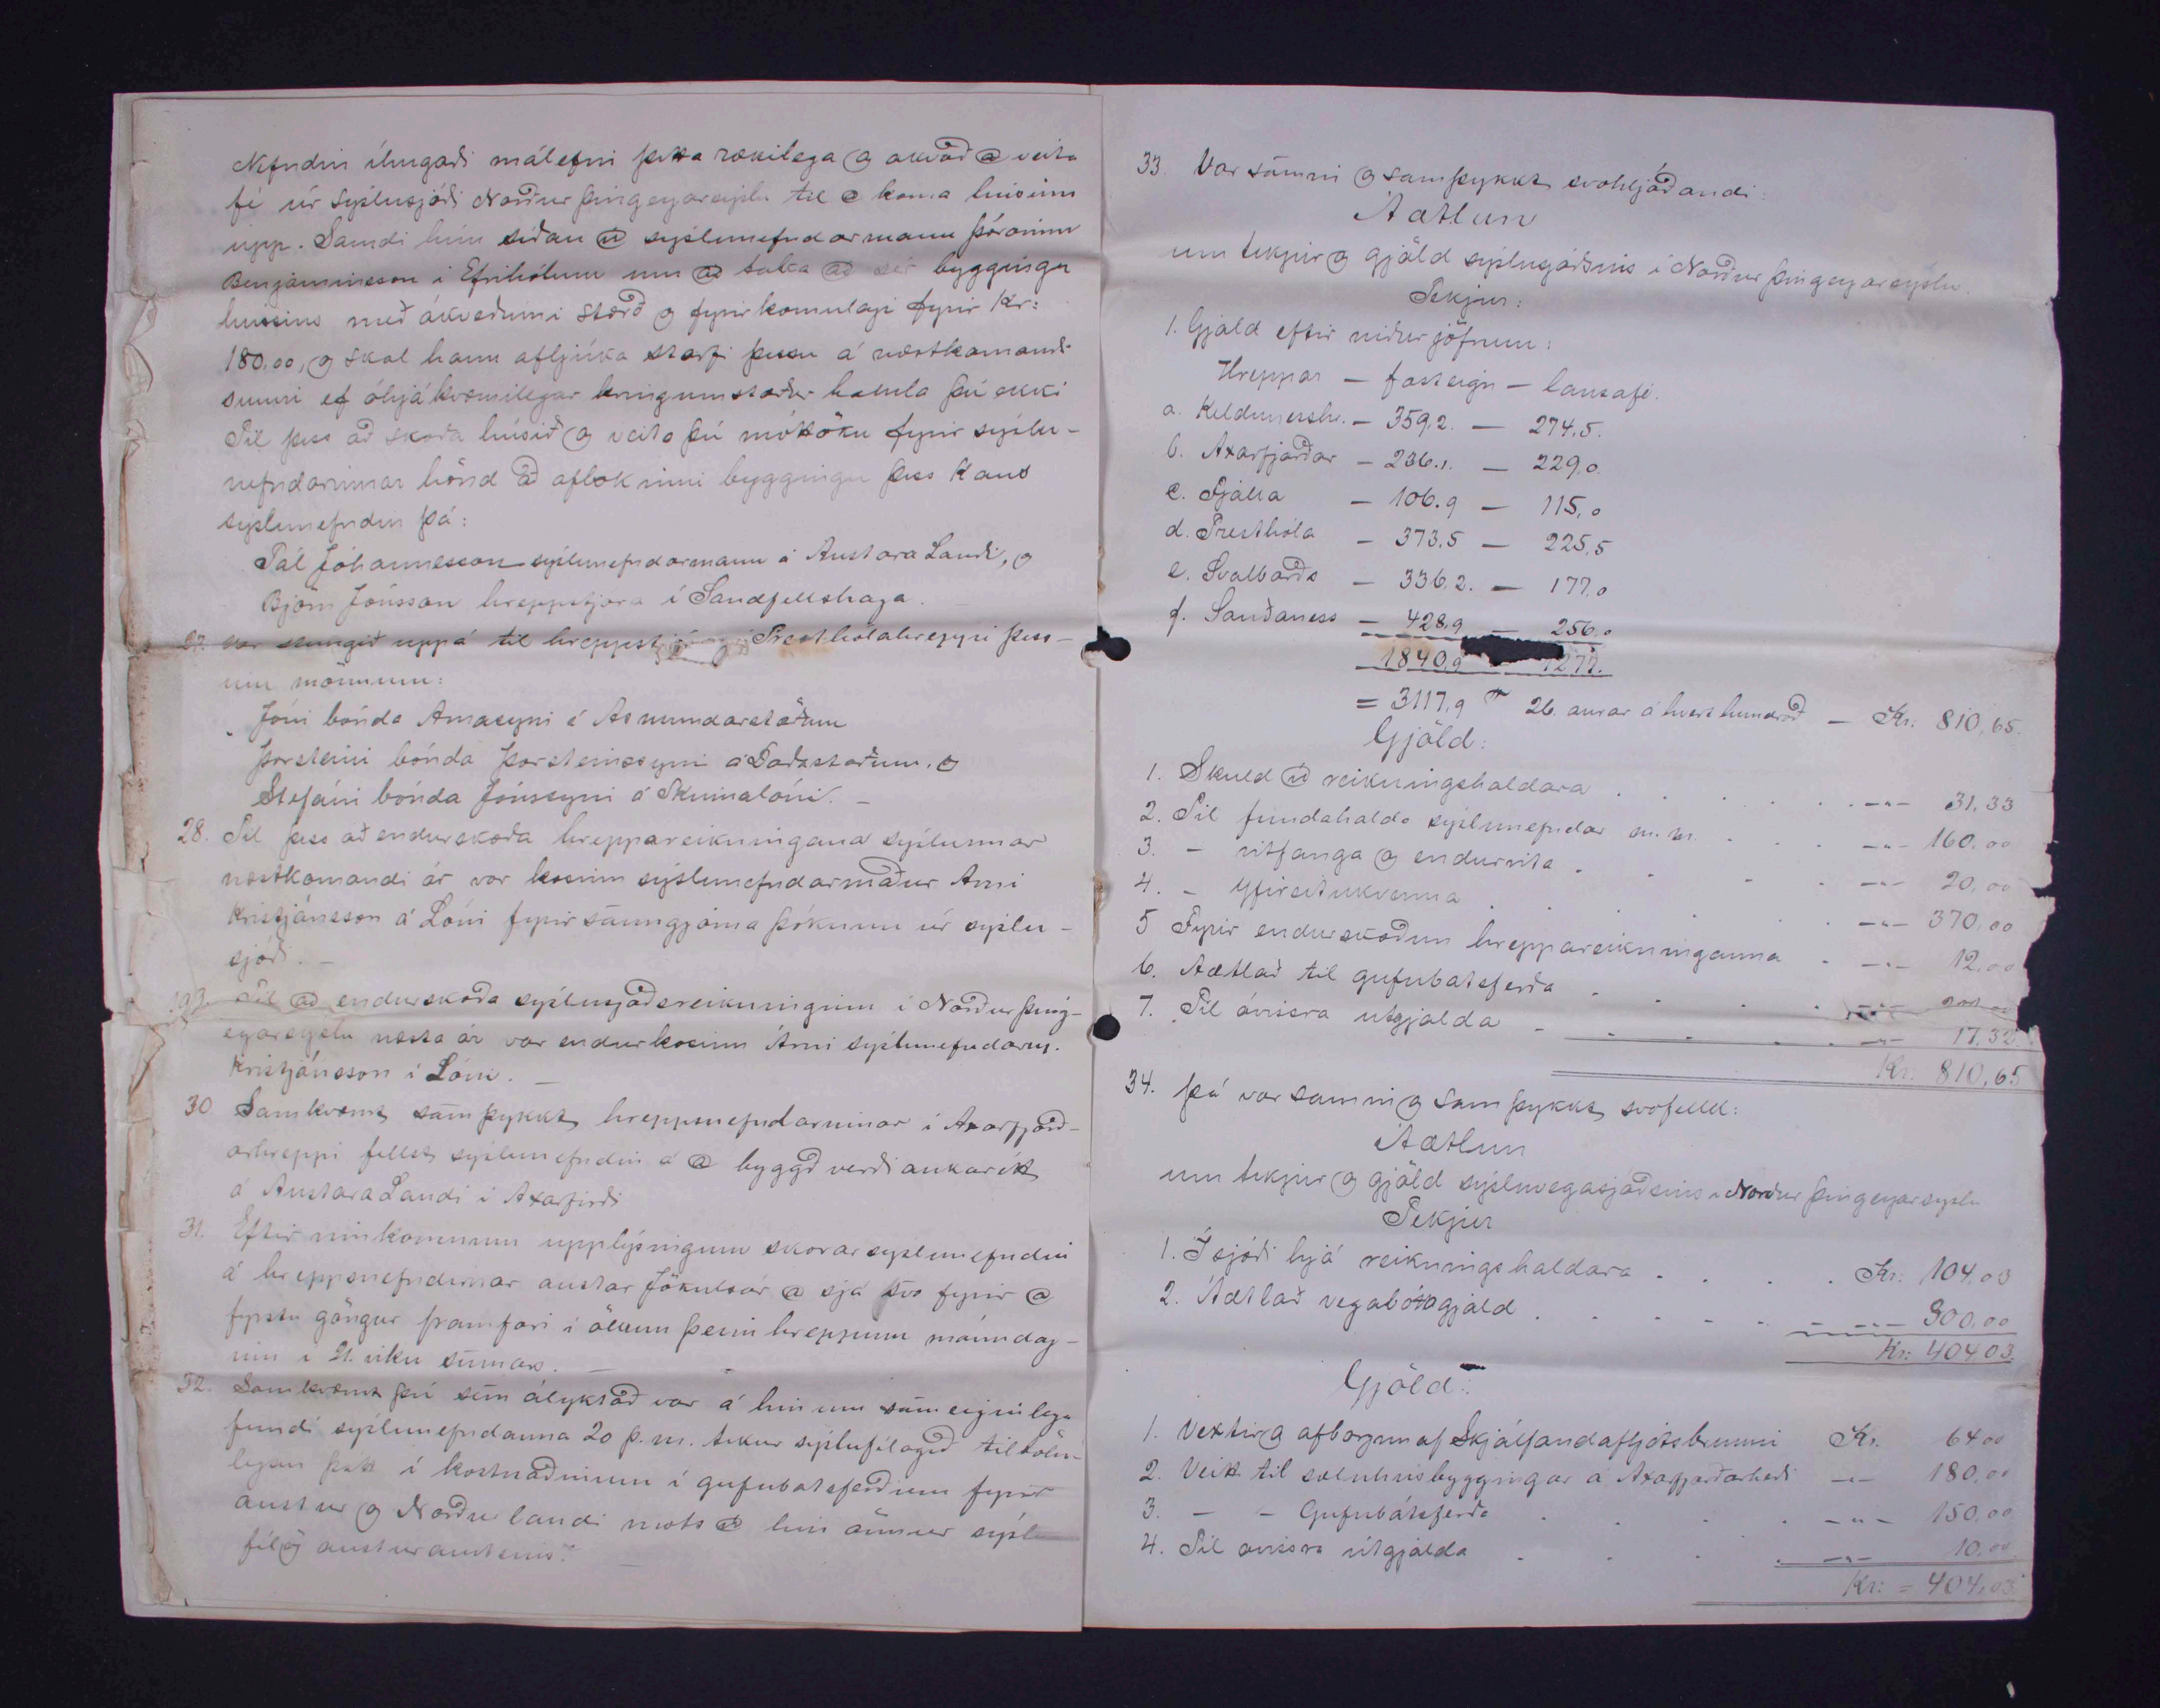 Nefndin íhugaði málefni þetta rækilega og ákvað að veita
fé úr sýslusjóði Norður þingeyarsýslu til að koma húsinu
upp. Samdi hún síðan við sýslunefndarmann Þórarinn
Benjamínsson í Efrihólum um að taka að sér byggingu
hússins með ákveðinni stærð og fyrirkomulagi fyrir Kr:
180,00, og skal hann afljúka starfi þessu á næstkomandi
sumri ef óhjákvæmilegar kringumstæður hamla því ekki
Til þess að skoða húsið og veita því móttöku fyrir sýslu-
nefndarinnar hönd að aflokinni byggingu þess kaus
sýslunefndin þá:
Pál Jóhannesson sýslunefndarmann á Austara Landi, og
Björn Jónsson hreppstjóra í Sandfellshaga.
27. Var stungið uppá til hreppstjóra í Presthólahreppi þess-
um mönnum:
Jóni bónda Árnasyni á Ásmundarstöðum
Þorsteini bónda Þorsteinssyni á Daðastöðum, og
Stefáni bónda Jónssyni á Skinnalóni. -
28. Til þess að endurskoða hreppareikningana sýslunnar
næstkomandi ár var kosinn sýslunefndarmaður Árni
Kristjánsson á Lóni fyrir sanngjarna þóknun úr sýslu-
sjóði. -
29. Til að endurskoða sýslusjóðsreikninginn í Norður þing-
eyarsýslu næsta ár var endurkosinn Árni sýslunefndarm.
Kristjánsson í Lóni. -
30. Samkvæmt samþykkt hreppsnefndarinnar í Axarfjarð-
arhreppi fellst sýslunefndin á að byggð verði aukarétt
á Austara Landi í Axarfirði
31. Eftir innkomnum upplýsingum skorar sýslunefndin
á hreppsnefndirnar austar Jökulsár að sjá svo fyrir að
fyrstu göngur framfari í öllum þeim hreppum mánudag-
inn í 21. viku sumars. -
32. Samkvæmt því sem ályktað var á hinum sameiginlega
fundi sýslunefndanna 20 þ.m. tekur sýslufélagið tiltölu-
legan þátt í kostnaðinum í gufubátsferðum fyrir
austur og Norðurlandi móts við hin önnur sýslu
félög austuramtsins. -
33. Var samin og samþykkt svohljóðandi:
Áætlun
um tekjur og gjöld sýslusjóðsins í Norður þingeyarsýslu.
Tekjur:
1. Gjald eftir niðurjöfnun:
Hreppar - fasteign - lausafé.
a. Kelduneshr. - 359,2. - 274,5.
b. Axarfjarðar - 236.1. - 229,0.
c. Fjalla - 106.9 - 115,0
d. Presthóla - 373,5 - 225,5
e. Svalbarðs - 336,2. - 177,0
f. Sauðaness - 428,9 - 256,0
1840,9 1277.
= 3117,9 26 aurar á hvert hundrað - Kr. 810,65.
Gjöld:
1. Skuld við reikningshaldara . . . . . -"- 31,33
2. Til fundahalda sýslunefndar m.m. . . . -"- 160,00
3. - ritfanga og endurrita . . . . -"- 20,00
4. - Yfirsetukvenna . . . . -"- 370,00
5 Fyrir endurskoðun hreppareikninganna . -"- 12,00
6. Áætlað til gufubátsferða . . . . -"-
7. Til ávissra útgjalda . . . . -"- 17,32
Kr. 810,65
34. Þá var samin og samþykkt svofelld:
Áætlun
um tekjur og gjöld sýsluvegasjóðsins í Norður þingeyarsýslu
Tekjur
1. Í sjóði hjá reikningshaldara . . . . Kr. 104,03
2. Áætlað vegabótagjald . . . . . -"- 300,00
Kr: 404,03.
Gjöld:
1. Vextir og afborgun af Skjálfandafljótsbrúnni Kr. 64,00
2. Veitt til sæluhúsbyggingar á Axarfjarðarheiði -"- 180,00
3. - - Gufubátsferða . . . . -"- 150,00
4. Til óvissra útgjalda . . . . -"- 10,00
Kr: = 404,03.